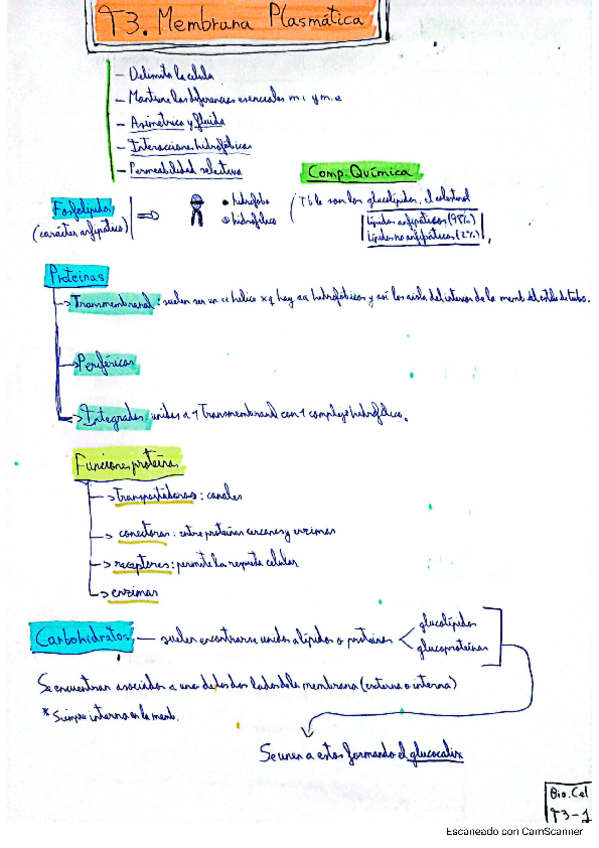 T3. Membrana Plasmática
- Delimita la célula
- Mantiene las diferencias esenciales m.i y m.e
- Asimétrica y fluida
- Interacciones hidrofóbicas
- Permeabilidad selectiva
Comp. Química
Fosfolípidos
(carácter anfipático)
• hidrófobo
• hidrofílico
(Tb lo son los glucolípidos, el colesterol
Lípidos anfipáticos (98%)
Lípidos no anfipáticos (2%)
Proteínas
→ Transmembranal: suelen ser en α hélice xq hay aa hidrofóbicos y así los aísla del interior de la memb del estilo de tubo.
→ Periféricas
→ Integradas: unidas a 1 Transmembranal con 1 complejo hidrofílico.
Funciones proteínas
→ transportadoras: canales
→ conectoras: entre proteínas cercanas y enzimas
→ receptores: permite la respuesta celular
→ enzimas
Carbohidratos — suelen encontrarse unidos a lípidos o proteínas
glucolípidos
glucoproteínas
Se encuentran asociados a uno de los dos lados de la membrana (externa o interna)
* Siempre interna en la memb.
Se unen a estos formando el glucocalix
Bio. Cel
T3-1
Escaneado con CamScanner